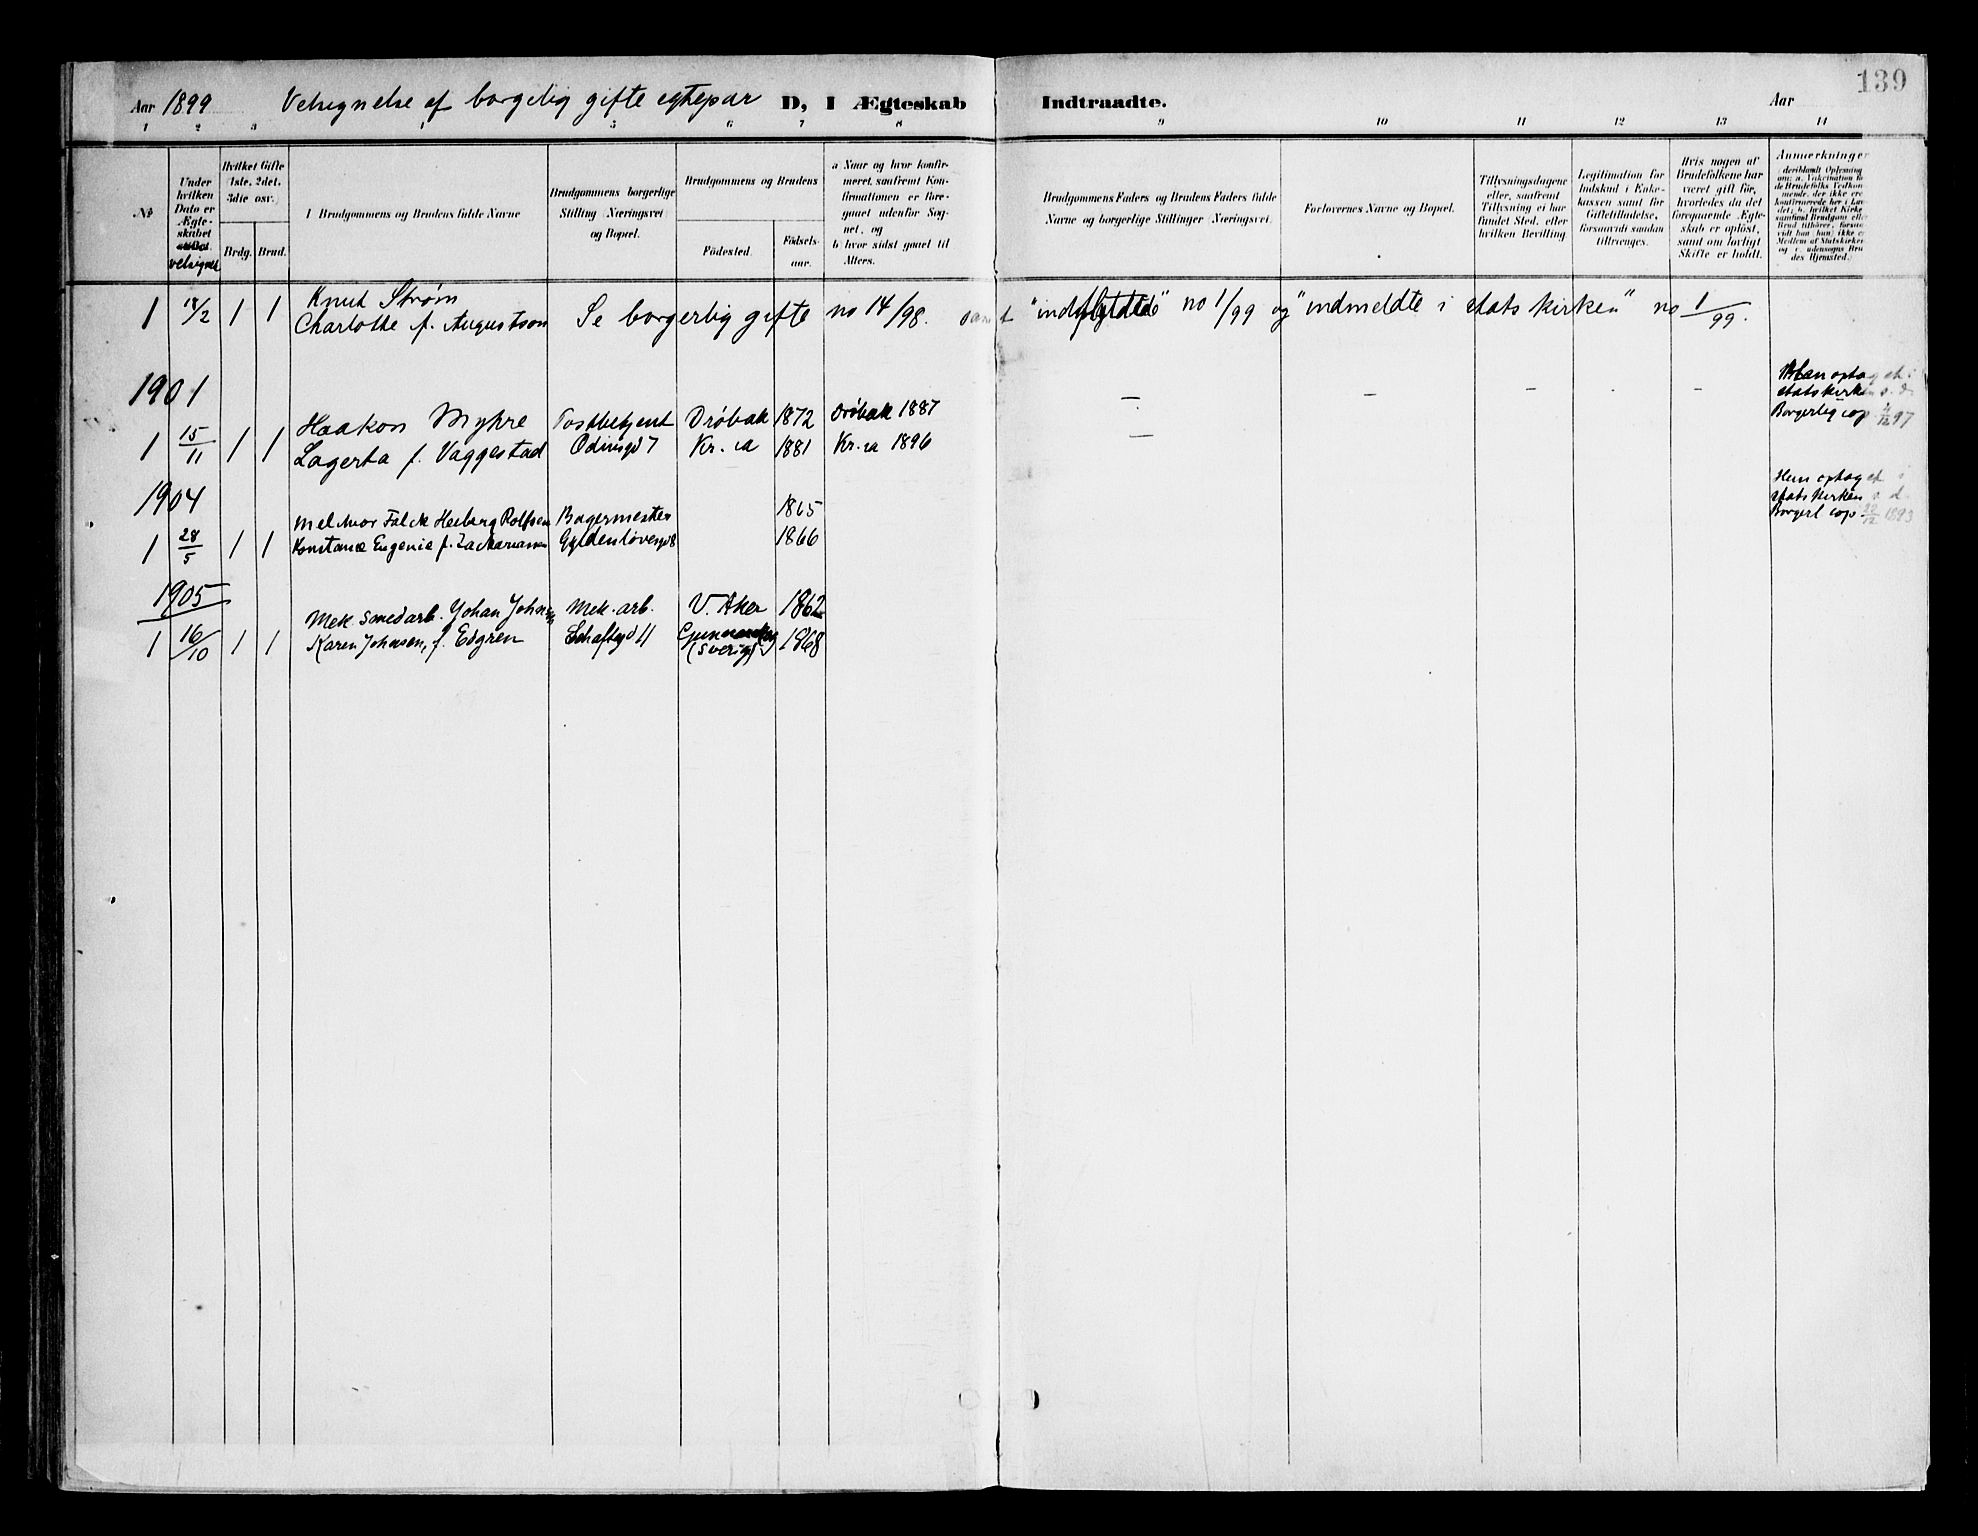 139
Aar 1899 Velsignelse af borgelig gifte egtepar D, I Ægteskab Indtraadte. Aar
1 2 3 4 5 6 7 8 9 10 11 12 13 14
№
Under hvilken Dato er Ægteskabet velsignet
Hvilket Gifte (1ste, 2det, 3die osv.)
Brdg. Brud.
Brudgommens og Brudens fulde Navne
Brudgommens borgerlige Stilling (Næringsvei) og Bopæl.
Brudgommens og Brudens
Födested. Födselsaar.
a Naar og hvor konfirmeret, saafremt Konfirmationen er foregaaet udenfor Sognet, og
b) hvor sidst gaaet til Alters.
Brudgommens Faders og Brudens Faders fulde Navne og borgerlige Stillinger (Næringsvei).
Forlovernes Navne og Bopæl.
Tillysningsdagene eller, saafremt Tillysning ei har fundet Sted, efter hvilken Bevilling
Legitimation for Indskud i Enkekassen samt for Giftetilladelse, forsaavidt saadan tiltrænges.
Hvis nogen af Brudefolkene har været gift för, hvorledes da det foregaaende Ægteskab er oplöst, samt om lovligt Skifte er holdt.
Anmærkninger
1 18/2 1 1 Knut Strøm
Charlotte f. Augustson Se borgerlig gifte no 14/98. samt "indflyttede" no 1/99 og "indmeldte i statskirken" no 1/99.
1901
Haakon Myhre Postbetjent Drøbak 1872 Drøbak 1887 — — - - -
1 15/11 1 1 Lagerta f. Vaggestad Odinsgd 7 Kr.a 1881 Kr.a 1896 —
Han optaget i
statskirken s. d.
Borgerlig cop 4/12 97
1904
Melchior Falck Heiberg Rolfsen Bagermester 1865
1 28/5 1 1 Konstance Eugenie f. Zachariassen Gyldenløvesgd 8 1866
Hun optaget i
statskirken s. d.
Borgerl cop 22/12 1893
1905
Mek. smedarb. Johan Johnsen Mek. arb. V. Aker 1862
1 16/10 1 1 Karen Johnsen, f. Edgren Schaftsgd 11 (Sverige) 1868